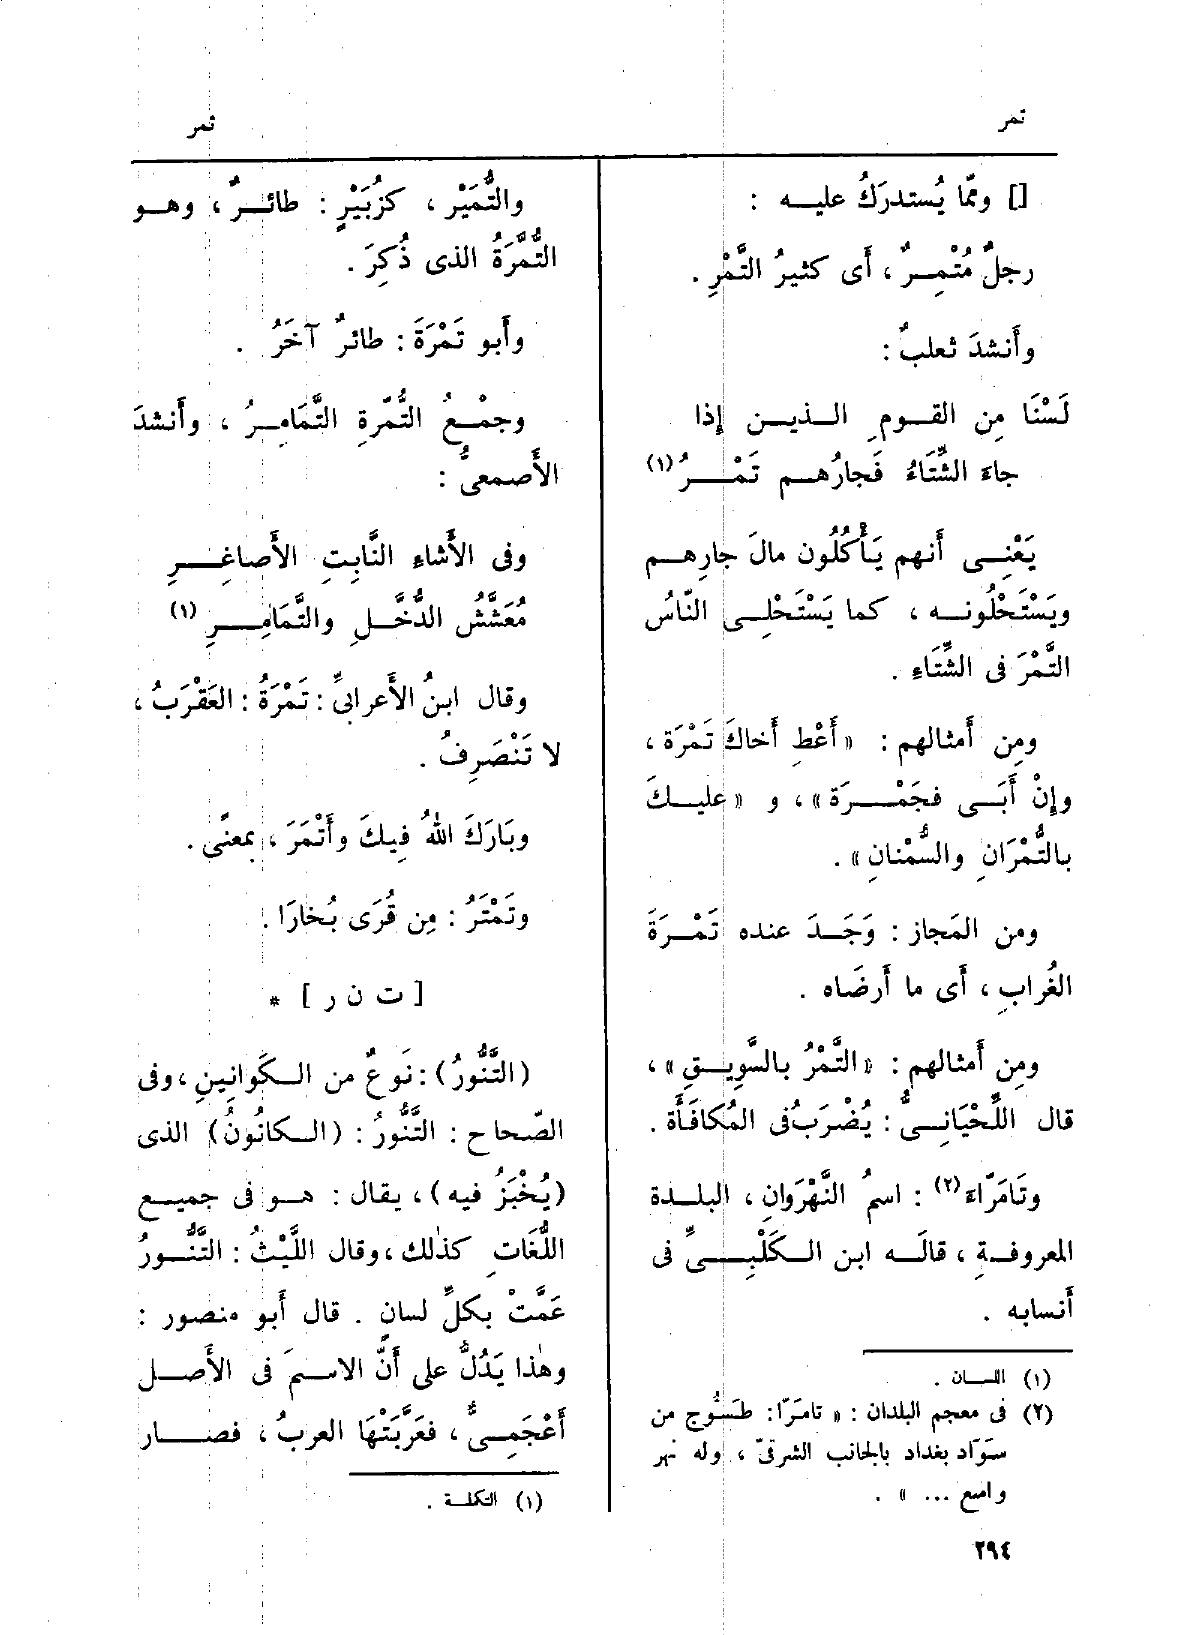 تمر
تمر
[] وممّا يُستدرَكُ عليه :
رجلٌ مُتْمِرٌ ، أَى كثيرُ التَّمْرِ .
وأَنشدَ ثعلبٌ :
لَسْنَا مِن القومِ الذين إِذا
جاءَ الشِّتَاءُ فَجارُهم تَمْرُ (١)
يَعْنِى أَنهم يَأْكُلُون مالَ جارِهم
ويَسْتَحْلُونه ، كما يَسْتَحْلِى النّاسُ
التَّمْرَ فى الشِّتَاءِ .
ومِن أَمثالهم : « أَعْطِ أَخاكَ تَمْرَة ،
وإِنْ أَبَى فجَمْرَة » ، و « عليكَ
بالتُّمْرَانِ والسُّمْنانِ » .
ومن المَجاز : وَجَدَ عنده تَمْرَةَ
الغُرابِ ، أَى ما أَرضَاه .
ومِن أَمثالهم : « التَّمْرُ بالسَّوِيقِ » ،
قال اللِّحْيَانِىُّ : يُضْرَبُ فى المُكافَأَة .
وتَامَرّاءَ (٢) : اسمُ النَّهْرَوانِ ، البلدة
المعروفةِ ، قالَه ابن الكَلْبِىِّ فى
أَنسابه .
(١) اللسان .
(٢) فى معجم البلدان : « تامَرّا : طَسُّوج من
سَوَاد بغداد بالجانب الشرقىّ ، وله نهر
واسع ... » .
والتُّمَيْر ، كزُبَيْرٍ : طائرٌ ، وهو
التُّمَّرَةُ الذى ذُكِرَ .
وأَبو تَمْرَةَ : طائرٌ آخَرُ .
وجمْعُ التُّمّرةِ التَّمَامِرُ ، وأَنشدَ
الأَصمعىُّ :
وفى الأَشاءِ النَّابِتِ الأَصاغِرِ
مُعَشَّشُ الدُّخَّلِ والتَّمَامِرِ (١)
وقال ابنُ الأَعرابىِّ : تَمْرَةُ : العَقْرَبُ ،
لا تَنْصَرِفُ .
وبَارَكَ اللهُ فِيكَ وأَتْمَرَ ، بمعنًى .
وتَمْتَرُ : مِن قُرَى بُخارَا .
[ ت ن ر ] *
(التَّنُّورُ) : نَوعٌ من الكَوانِينِ ، وفى
الصّحاح : التَّنُّورُ : (الكانُونُ) الذى
(يُخْبَزُ فيه) ، يقال : هو فى جميع
اللُّغَاتِ كذٰلك ، وقال اللَّيْثُ : التَّنُّورُ
عَمَّتْ بكلِّ لسان . قال أَبو منصور :
وهٰذا يَدُلُّ على أَنَّ الاسمَ فى الأَصل
أَعْجَمِىٌّ ، فعَرَّبَتْهَا العربُ ، فصار
(١) التكملة .
٢٩٤